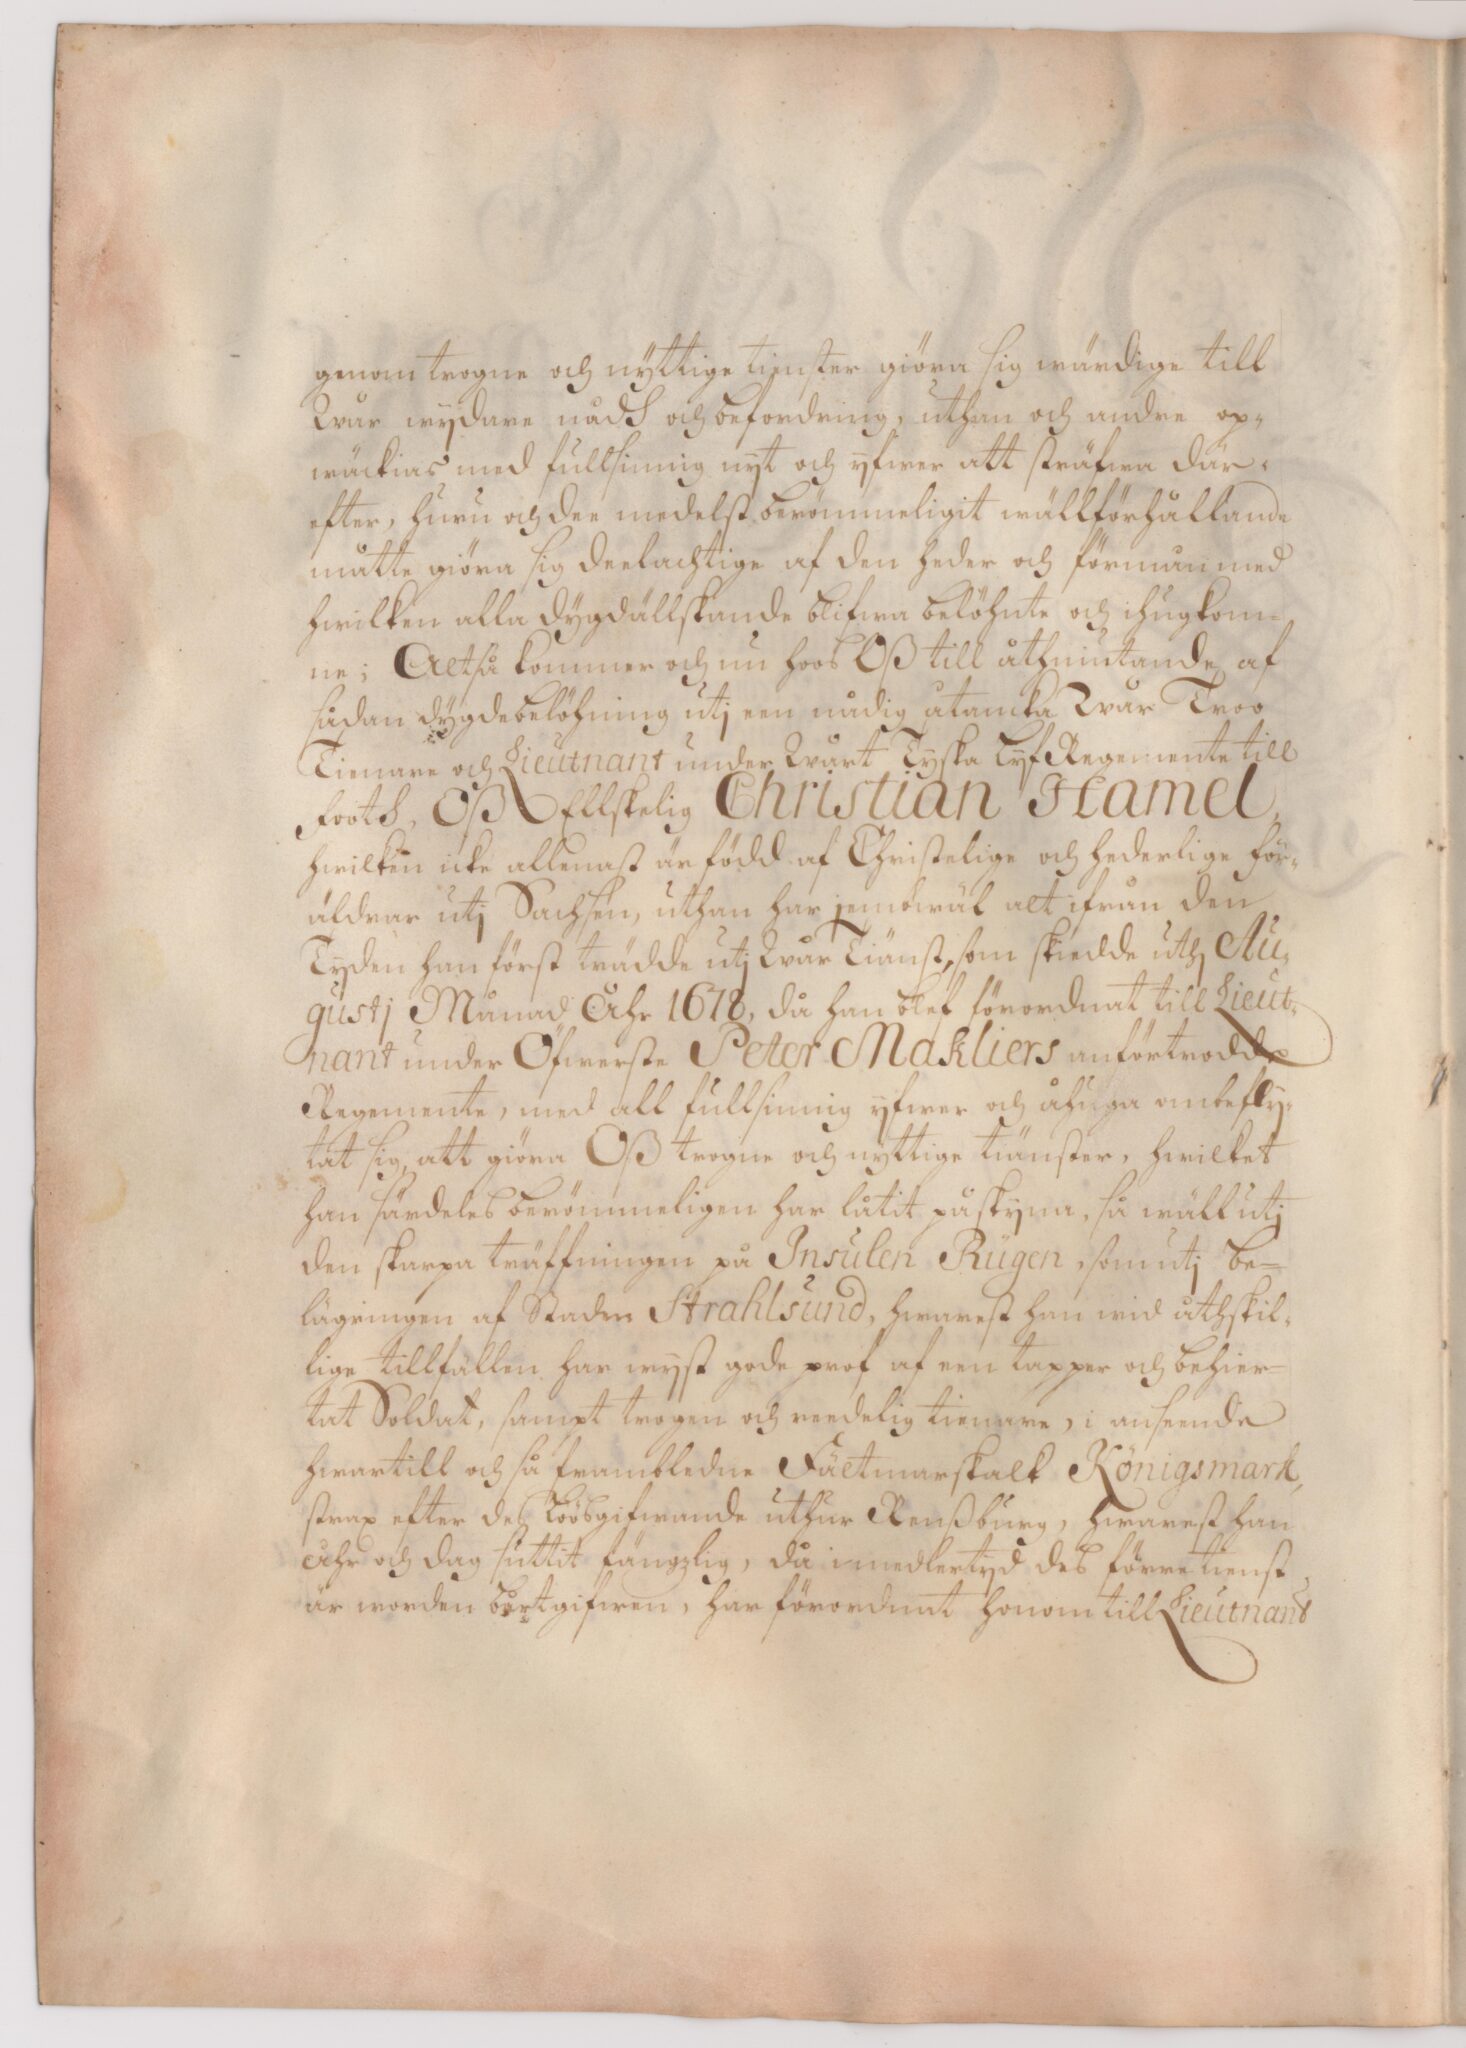 genom trogne och nyttige tienster giöra sig wärdige till
Wår wydare nåd och befordring, uthan och andre op-
wäckias med fullsinnig nyt och yfwer att sträfwa där-
efter, huru och dee medelst berömmeligit wällförhållande
måtte giöra sig deelachtige af den heder och förmån med
hwilken alla dygdällskande blifwa belöhnte och ihugkom-
ne; Altså kommer och nu hoos Oß till åthniutande af
sådan dygdebelöhning utj een nådig åtancka Wår Troo
Tienare och Lieutnant under Wårt Tyska Lyf Regemente till
foot, Oß Ellskelig Christian Hamel,
hwilken icke allenast är född af Christelige och hederlige för-
äldrar utj Sachsen, uthan har jemwäl alt ifrån den
Tyden han först trädde utj Wår Tiänst, som skiedde uthj Au-
gustj Månad Åhr 1678, då han blef förordnat till Lieut-
nant under Öfwerste Peter Makliers anförtrodde
Regemente, med all fullsinnig yfwer och åhuga ombefly-
tat sig, att giöra Oß trogne och nyttige tiänster, hwilket
han särdeles berömmeligen har låtit påskyna, så wäll utj
den skarpa träffningen på Insulen Rügen, som utj be-
lägringen af Staden Strahlsund, hwarest han wid åthskil-
lige tillfällen har wyst gode prof af een tapper och behier-
tat Soldat, sampt trogen och reedelig tienare, i anseende
hwartill och så frambledne Fältmarskalk Königsmark,
strax efter des Löösgifwande uthur Renßburg, hwarest han
Åhr och dag suttit fängslig, då i medlertyd des förre tienst
är worden bortgifwen, har förordnat honom till Lieutnant